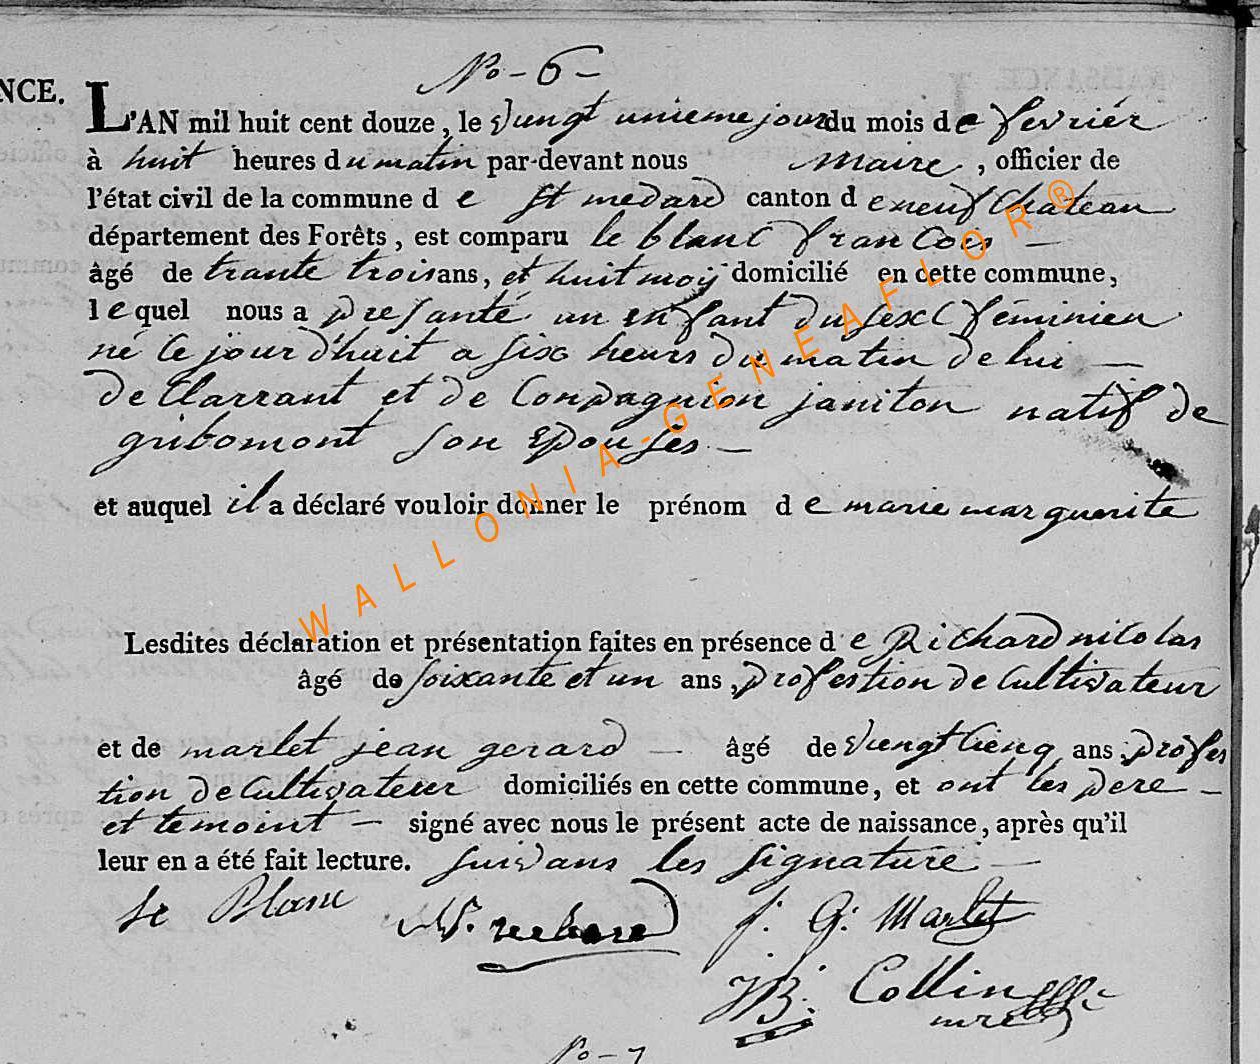 No - 6 -
NCE.
L'AN mil huit cent douze, le Vungt unieme jour du mois de fevriér
à huit heures du matin par-devant nous maire, officier de
l'état civil de la commune d e St medard canton d e neuf Chateau
département des Forêts, est comparu le blanc francois -
âgé de trante trois ans, et huit moij domicilié en cette commune,
lequel nous a presanté un enfant du sexe féminien
né ce jour d'huit a six heurs du matin de lui -
declarrant et de Compagnion janiton natif de
gribomont son epouses -
et auquel il a déclaré vouloir donner le prénom d e marie marguerite
Lesdites déclaration et présentation faites en présence d e Richard nicolas
âgé de soixante et un ans, profestion de Cultivateur
et de marlet jean gerard - âgé de Vungt cienq ans profes
tion de Cultivateur domiciliés en cette commune, et ont les pere -
et temoint - signé avec nous le présent acte de naissance, après qu'il
leur en a été fait lecture. suivans les signature -
le Blanc N. rechard J. G. Marlet
JB. Collin
mre
No - 7
WALLONIA-GENEAFLOR®